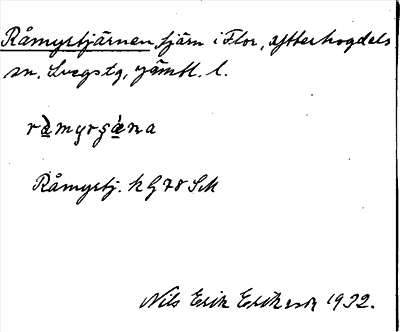 Råmyrtjärnen, tjärn i Flor, Ytterhogdals
sn. Svegs tg, Jämtl. l.
Råmyrtj. k G 78 SM
Nils Erik Eriksson 1932.